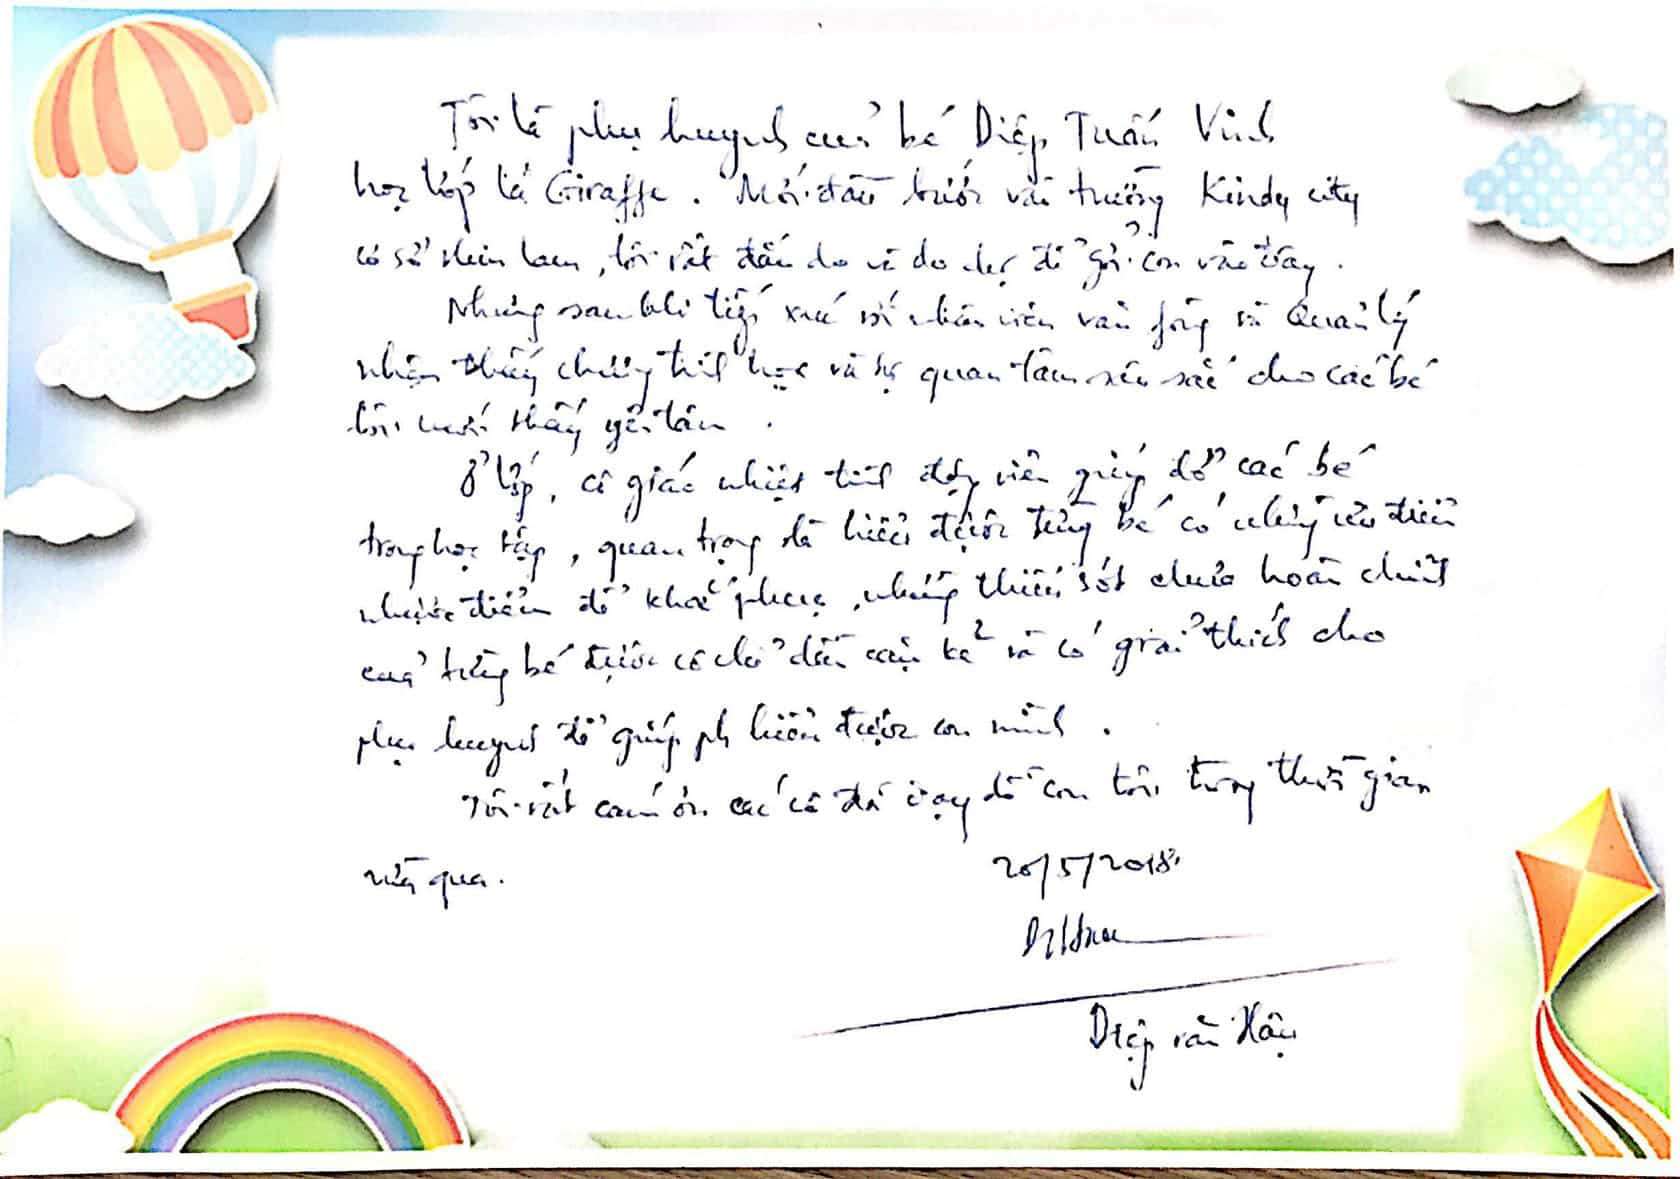 Tôi là phụ huynh của bé Diệp Tuấn Vinh
học lớp lá Giraffe. Mới đầu bước vào trường Kindy city
cơ sở Him Lam, tôi rất đắn đo và do dự để gởi con vào đây.
Nhưng sau khi tiếp xúc với nhân viên văn fòng và Quản lý
nhận thấy chương trình học và sự quan tâm sâu sắc cho các bé
tôi mới thấy yên tâm.
Ở lớp, cô giáo nhiệt tình động viên giúp đỡ các bé
trong học tập, quan trọng là hiểu được từng bé có những ưu điểm
nhược điểm để khắc phục, những thiếu sót chưa hoàn chỉnh
của từng bé được cô chỉ dẫn cặn kẽ và có giải thích cho
phụ huynh để giúp ph hiểu được con mình.
Tôi rất cám ơn các cô đã dạy dỗ con tôi trong thời gian
vừa qua.
20/5/2018
Diệp văn Hậu